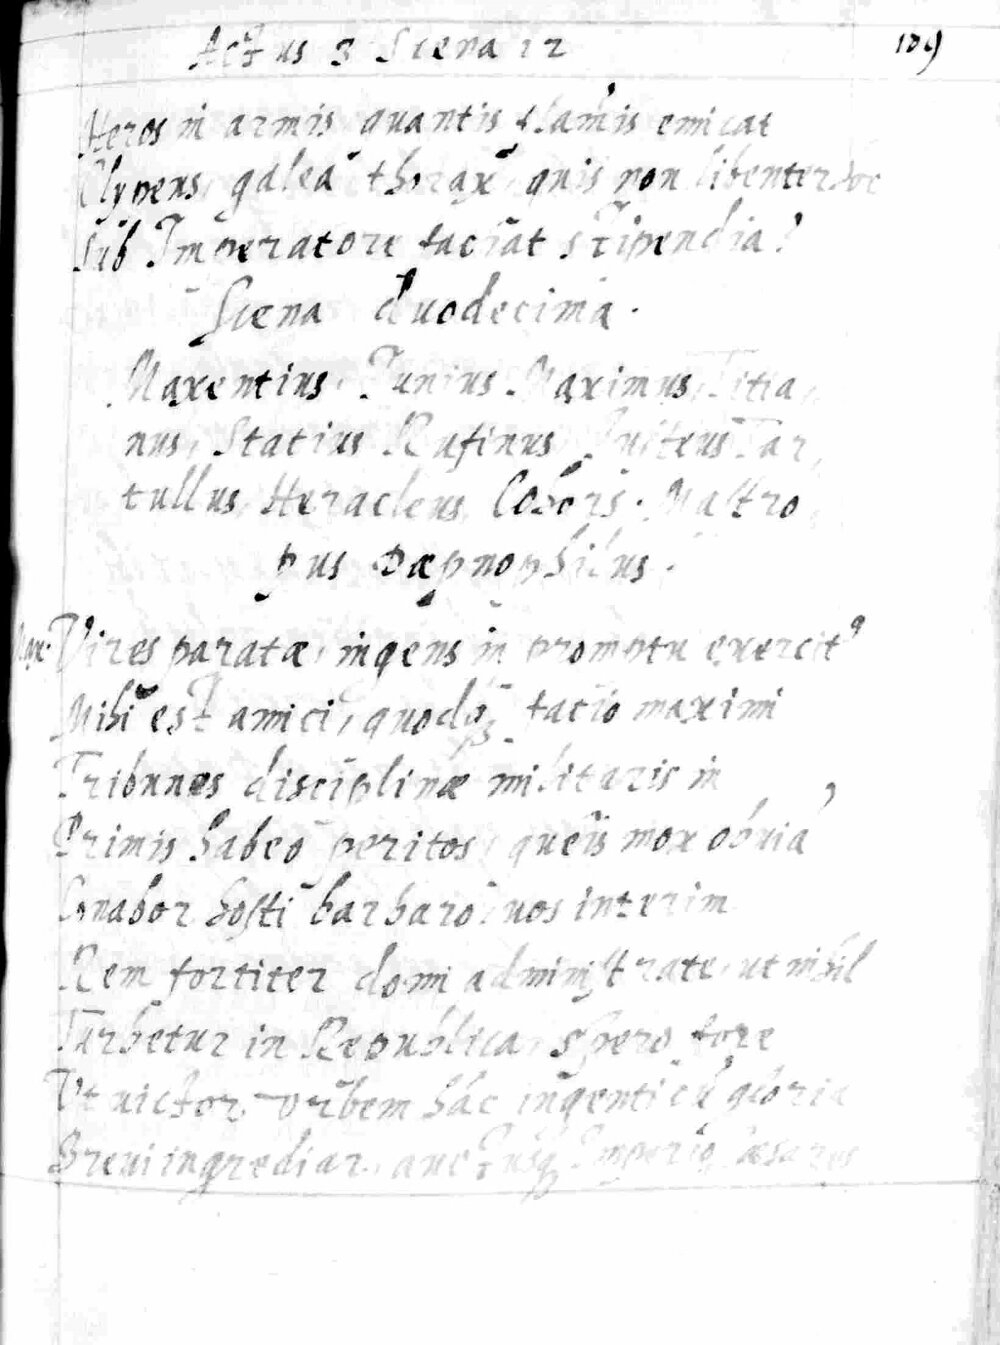 Actus 3 Scena 12 109
Heros in armis quantis flāmis emicat
Clypeus, galea thorax, quis non libenter hoc
Sub Imperatore faciat stipendia?
Scena duodecima.
Maxentius, Junius Maximus, Titia,
nus, Statius Rufinus, Tar,
tullus, Heracleus, Mastro
pus Dæpnophilus.
Max. Vires paratæ, ingens in promptu exercit9
Mihi est amici, quodqꝫ facio maximi
Tribunos disciplinæ militaris in
Primis habeo peritos, queis mox obuiā
Conabor hosti barbaro: uos interim
Rem fortiter domi administrate, ut nihil
Turbetur in Republica, spero fore
Vt uictor urbem hāc ingenti cū gloria
Breui ingrediar, auctusqꝫ Imperio